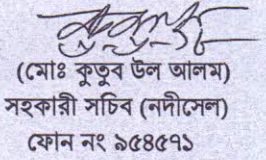 (মোঃ কুতুব উল আলম)
সহকারী সচিব (নদীসেল)
ফোন নং ৯৫৪৫৭১